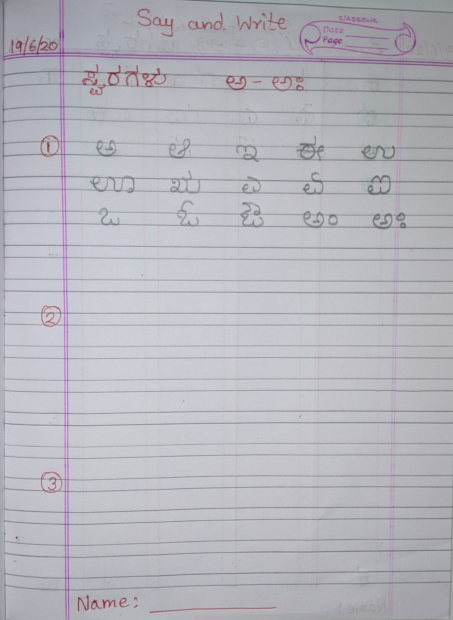 Say and Write
classmate
Date
Page
19/6/20
ಸ್ವರಗಳು ಅ - ಅಃ
① ಅ ಆ ಇ ಈ ಉ
ಊ ಋ ಎ ಏ ಐ
ಒ ಓ ಔ ಅಂ ಅಃ
②
③
Name: ____________